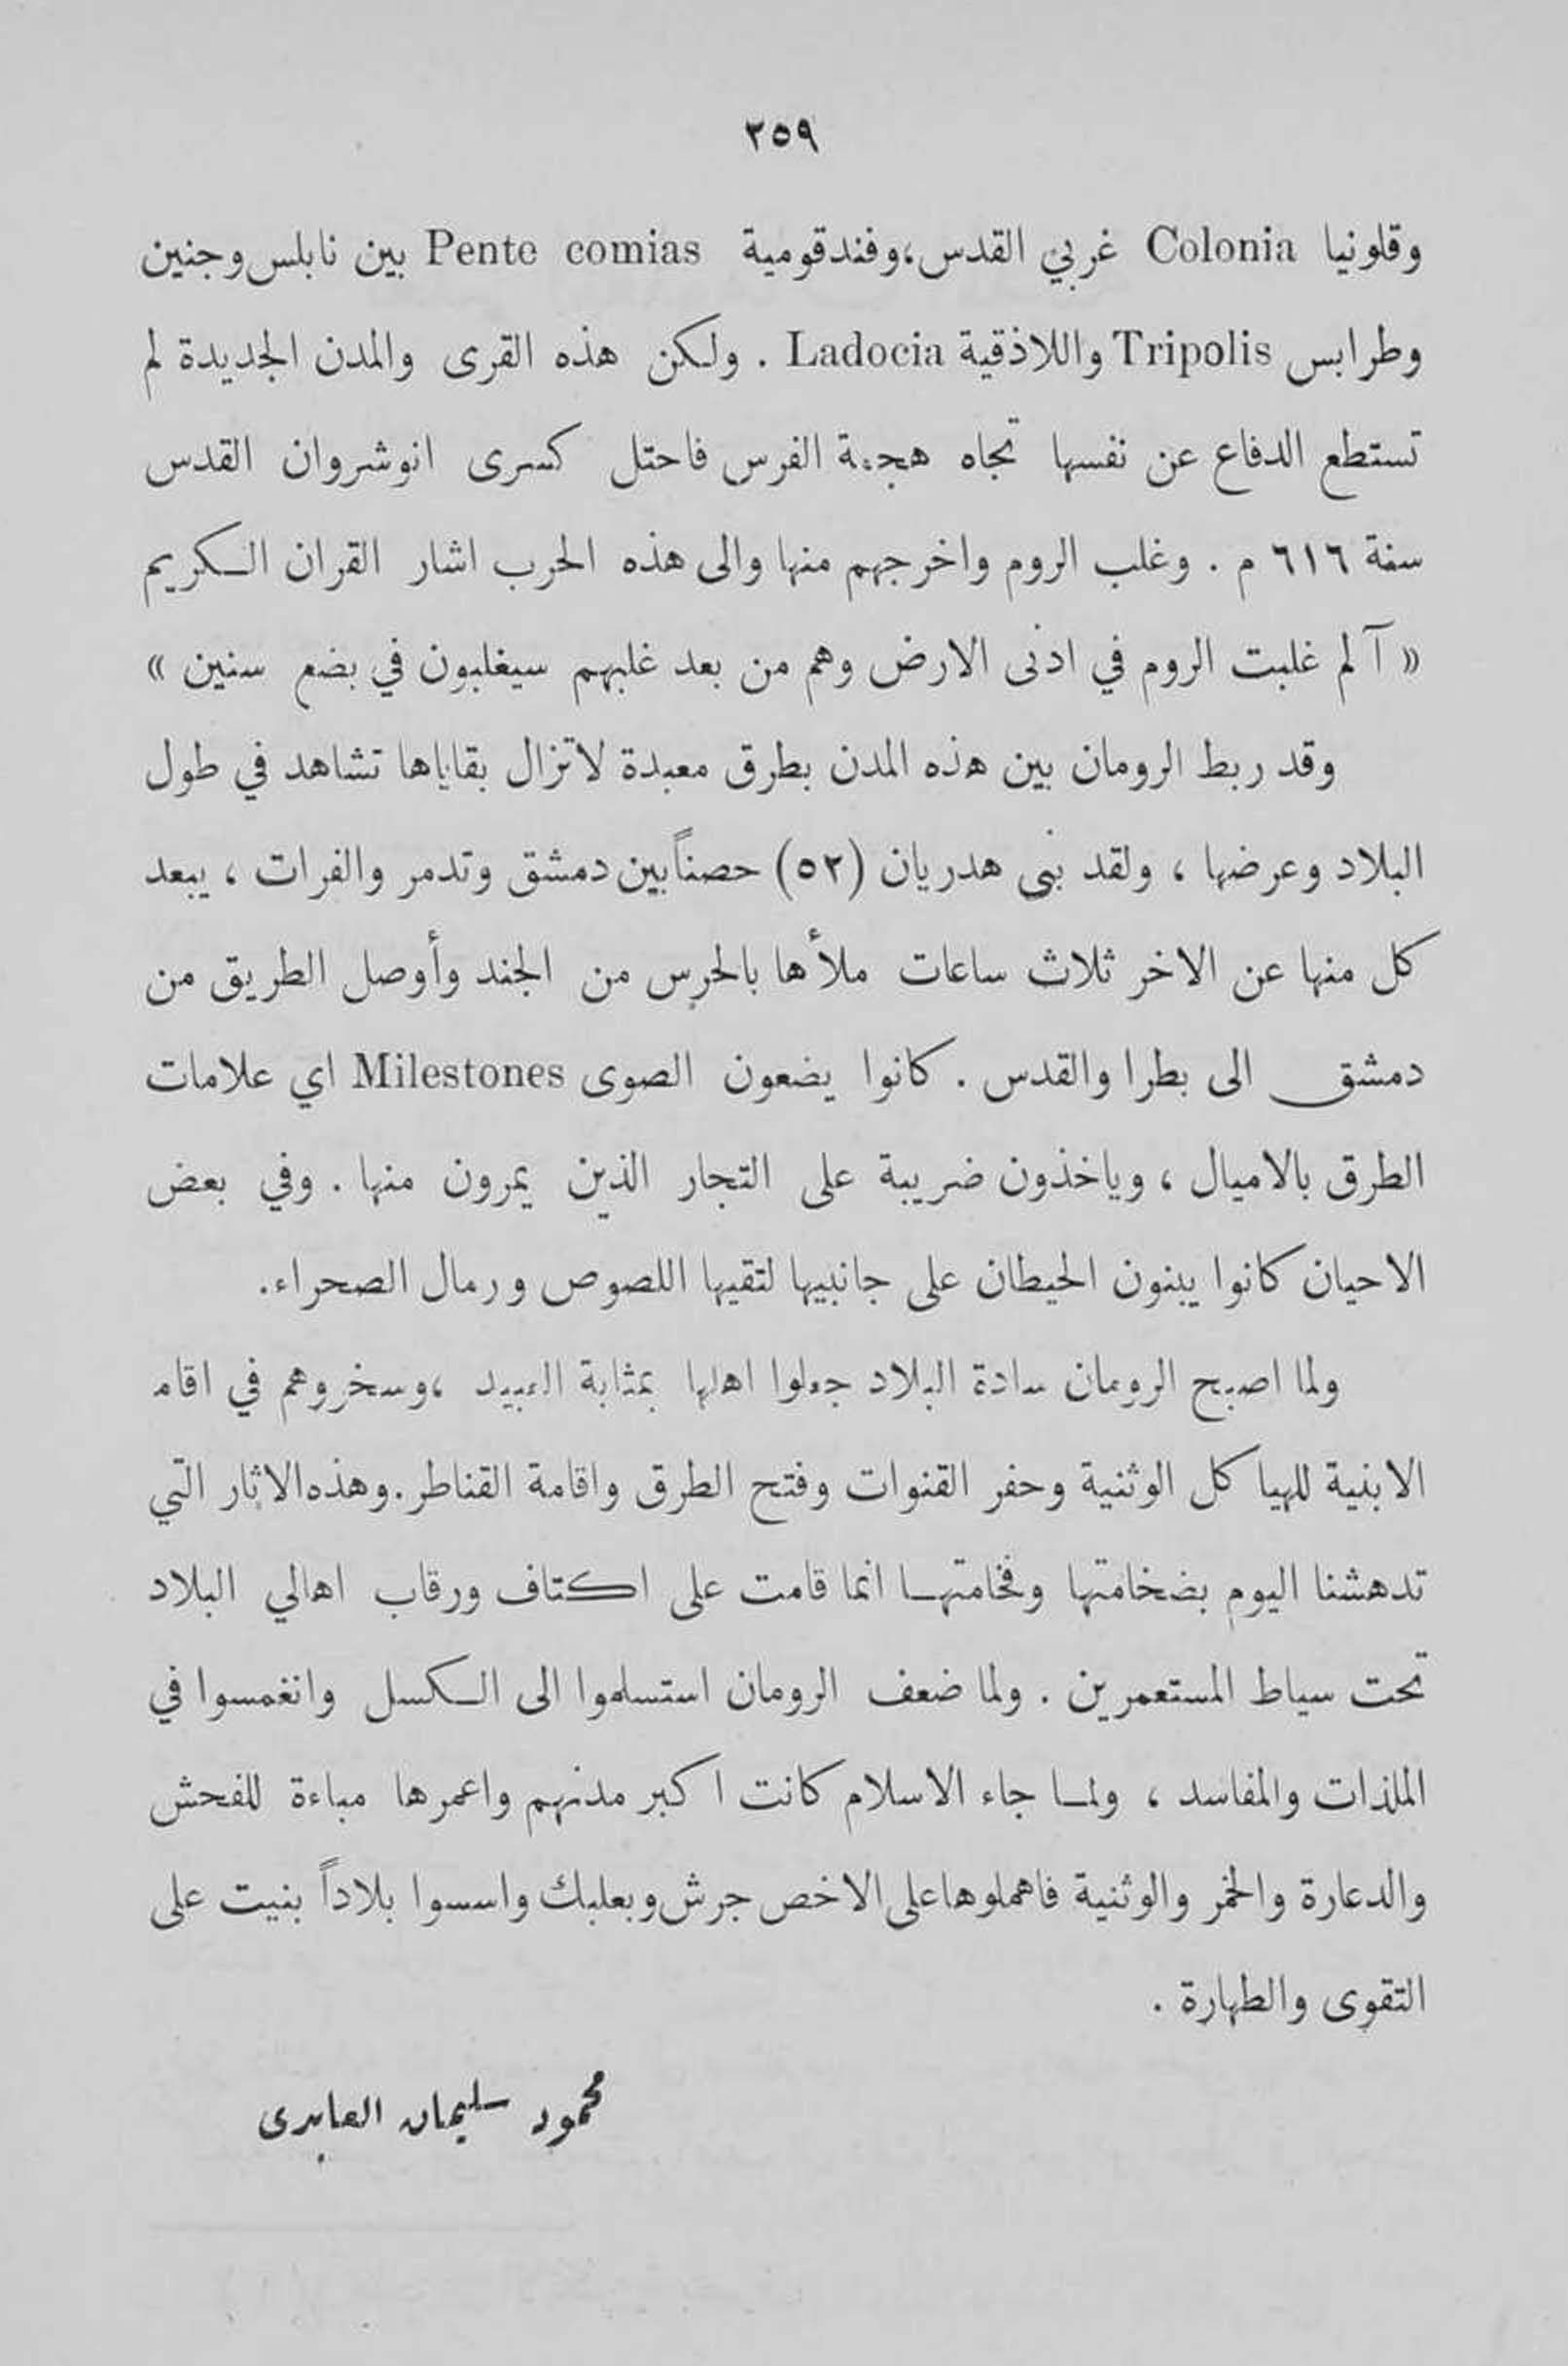 ٢٥٩
وقلونيا Colonia غربي القدس، وفندقومية Pente comias بين نابلس وجنين
وطرابس Tripolis واللاذقية Ladocia . ولكن هذه القرى والمدن الجديدة لم
تستطع الدفاع عن نفسها تجاه هجمة الفرس فاحتل كسرى انوشروان القدس
سنة ٦١٦ م . وغلب الروم واخرجهم منها والى هذه الحرب اشار القران الكريم
« آلم غلبت الروم في ادنى الارض وهم من بعد غلبهم سيغلبون في بضع سنين »
وقد ربط الرومان بين هذه المدن بطرق معبدة لاتزال بقاياها تشاهد في طول
البلاد وعرضها ، ولقد بنى هدريان (٥٢) حصناً بين دمشق وتدمر والفرات ، يبعد
كل منها عن الاخر ثلاث ساعات ملأها بالحرس من الجند وأوصل الطريق من
دمشق الى بطرا والقدس . كانوا يضعون الصوى Milestones اي علامات
الطرق بالاميال ، وياخذون ضريبة على التجار الذين يمرون منها . وفي بعض
الاحيان كانوا يبنون الحيطان على جانبيها لتقيها اللصوص ورمال الصحراء.
ولما اصبح الرومان سادة البلاد جعلوا اهلها بمثابة العبيد ،وسخروهم في اقامه
الابنية للهياكل الوثنية وحفر القنوات وفتح الطرق واقامة القناطر. وهذه الاثار التي
تدهشنا اليوم بضخامتها وفخامتها انما قامت على اكتاف ورقاب اهالي البلاد
تحت سياط المستعمرين . ولما ضعف الرومان استسلموا الى الكسل وانغمسوا في
الملذات والمفاسد ، ولما جاء الاسلام كانت اكبر مدنهم واعمرها مباءة للفحش
والدعارة والخمر والوثنية فاهملوها على الاخص جرش وبعلبك واسسوا بلاداً بنيت على
التقوى والطهارة .
محمود سليمان العابدى